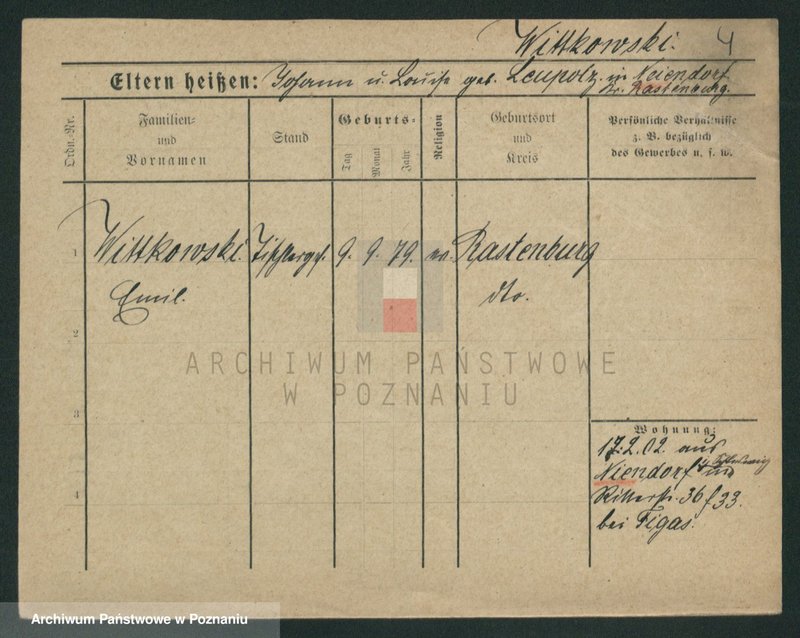 Wittkowski. 4
Eltern heißen: Johann u. Louise geb. Leupolz in Neiendorf
Kr. Rastenburg.
Ordn.-Nr.
Familien-
und
Vornamen
Stand
Geburts-
Tag
Monat
Jahr
Religion
Geburtsort
und
Kreis
Persönliche Verhältnisse
z. B. bezüglich
des Gewerbes u. s. w.
1 Wittkowski. Tischlerges. 9. 9. 79. ev. Rastenburg
Emil. dto.
2
ARCHIWUM PAŃSTWOWE
W POZNANIU
3
Wohnung:
17.2.02 aus
Niendorf
4
Ritterstr. 36 f 33.
bei Figas.
Archiwum Państwowe w Poznaniu